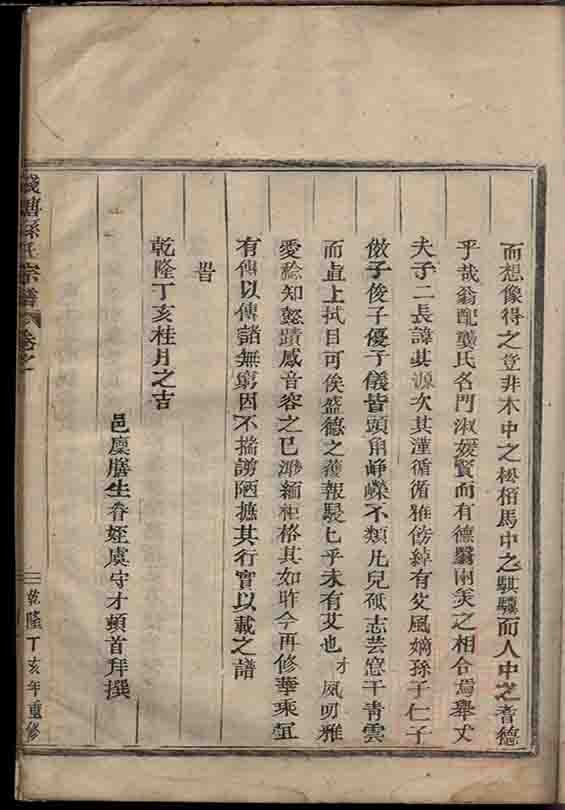 而想像得之豈非木中之松栢馬中之騏驥而人中之耆德
乎哉翁配龔氏名門淑媛賢而有德翳兩美之相合焉舉丈
夫子二長諱其源次其潼循循雅飭綽有父風嫡孫子仁子
倣子俊子優子儀皆頭角崢嶸不類凡兒砥志芸窓干青雲
而直上拭目可俟盛德之獲報駸匕乎未有艾也才夙叨雅
愛稔知懿蹟感音容之已渺緬柜格其如昨今再修華乘宜
有傳以傳諸無窮因不揣謭陋摭其行實以載之譜
旹
乾隆丁亥桂月之吉
邑廩膳生眷姪虞守才頓首拜撰
錢塘孫氏宗譜 卷之一
乾隆丁亥年重修